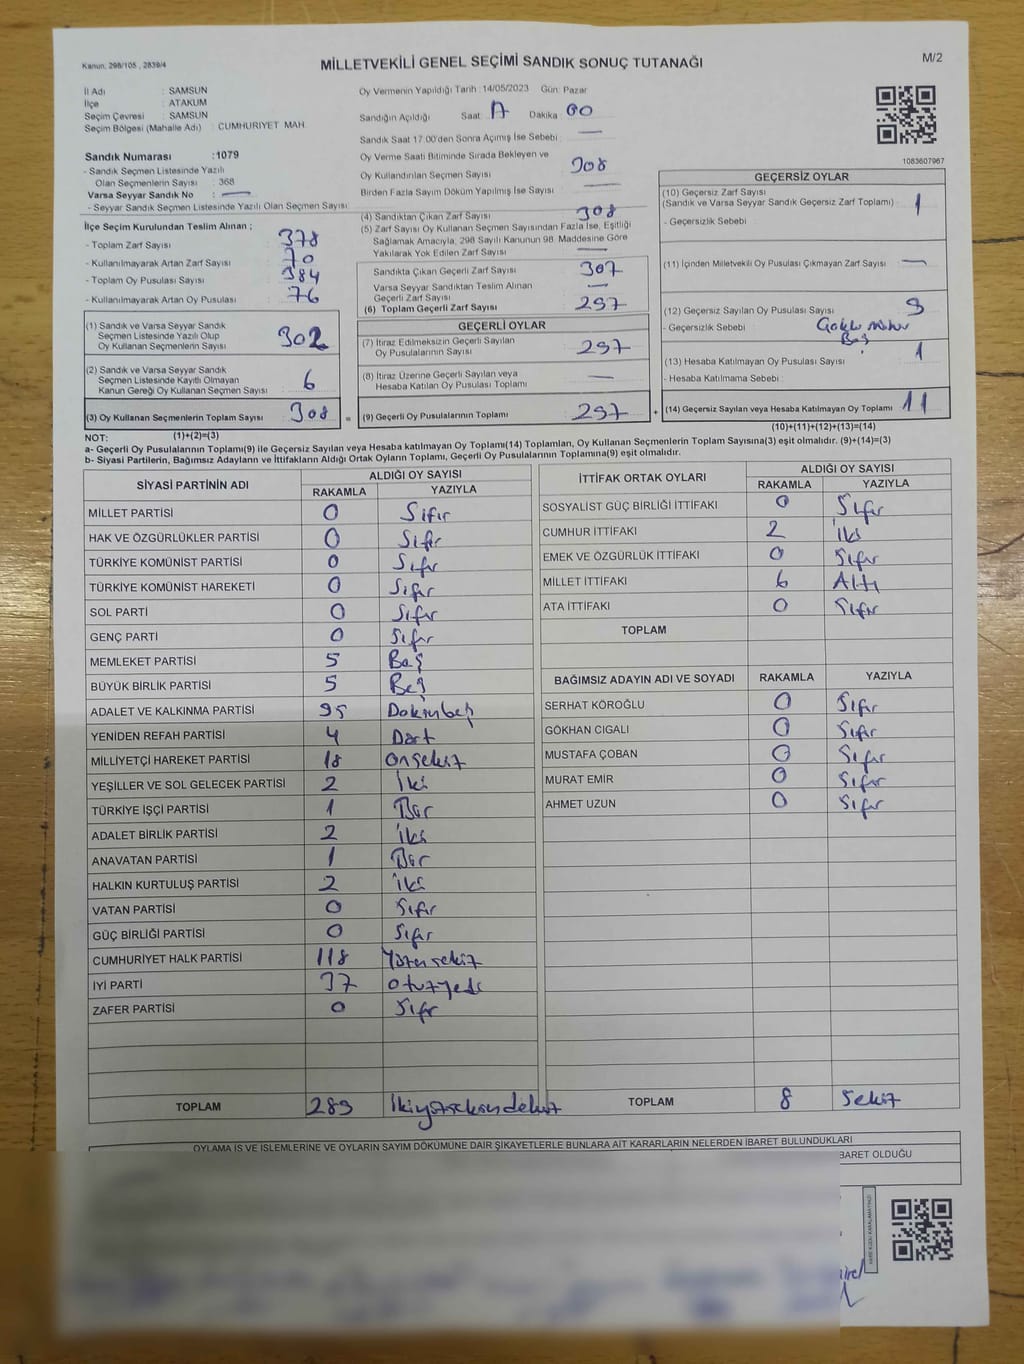 Kanun, 298/105 , 2839/4
MİLLETVEKİLİ GENEL SEÇİMİ SANDIK SONUÇ TUTANAĞI
M/2
İl Adı : SAMSUN
İlçe : ATAKUM
Seçim Çevresi : SAMSUN
Seçim Bölgesi (Mahalle Adı) : CUMHURIYET MAH.
Sandık Numarası :1079
- Sandık Seçmen Listesinde Yazılı
Olan Seçmenlerin Sayısı : 368
Varsa Seyyar Sandık No : —
- Seyyar Sandık Seçmen Listesinde Yazılı Olan Seçmen Sayısı
İlçe Seçim Kurulundan Teslim Alınan ;
- Toplam Zarf Sayısı : 378
- Kullanılmayarak Artan Zarf Sayısı : 70
- Toplam Oy Pusulası Sayısı : 384
- Kullanılmayarak Artan Oy Pusulası : 76
(1) Sandık ve Varsa Seyyar Sandık
Seçmen Listesinde Yazılı Olup
Oy Kullanan Seçmenlerin Sayısı 302
(2) Sandık ve Varsa Seyyar Sandık
Seçmen Listesinde Kayıtlı Olmayan
Kanun Gereği Oy Kullanan Seçmen Sayısı 6
(3) Oy Kullanan Seçmenlerin Toplam Sayısı 308 =
(1)+(2)=(3)
Oy Vermenin Yapıldığı Tarih :14/05/2023 Gün: Pazar
Sandığın Açıldığı Saat Dakika 00
Sandık Saat 17:00'den Sonra Açılmış İse Sebebi : —
Oy Verme Saati Bitiminde Sırada Bekleyen ve
Oy Kullandırılan Seçmen Sayısı : 308
Birden Fazla Sayım Döküm Yapılmış İse Sayısı : —
(4) Sandıktan Çıkan Zarf Sayısı : 308
(5) Zarf Sayısı Oy Kullanan Seçmen Sayısından Fazla İse, Eşitliği
Sağlamak Amacıyla, 298 Sayılı Kanunun 98. Maddesine Göre
Yakılarak Yok Edilen Zarf Sayısı : —
Sandıkta Çıkan Geçerli Zarf Sayısı : 307
Varsa Seyyar Sandıktan Teslim Alınan
Geçerli Zarf Sayısı : —
(6) Toplam Geçerli Zarf Sayısı : 297
GEÇERLİ OYLAR
(7) İtiraz Edilmeksizin Geçerli Sayılan
Oy Pusulalarının Sayısı : 297
(8) İtiraz Üzerine Geçerli Sayılan veya
Hesaba Katılan Oy Pusulası Toplamı : —
(9) Geçerli Oy Pusulalarının Toplamı : 297 +
1083607967
GEÇERSİZ OYLAR
(10) Geçersiz Zarf Sayısı
(Sandık ve Varsa Seyyar Sandık Geçersiz Zarf Toplamı) : 1
- Geçersizlik Sebebi :
(11) İçinden Milletvekili Oy Pusulası Çıkmayan Zarf Sayısı : —
(12) Geçersiz Sayılan Oy Pusulası Sayısı : 9
- Geçersizlik Sebebi : Boş
(13) Hesaba Katılmayan Oy Pusulası Sayısı : 1
- Hesaba Katılmama Sebebi :
(14) Geçersiz Sayılan veya Hesaba Katılmayan Oy Toplamı : 11
(10)+(11)+(12)+(13)=(14)
NOT:
a- Geçerli Oy Pusulalarının Toplamı(9) ile Geçersiz Sayılan veya Hesaba katılmayan Oy Toplamı(14) Toplamları, Oy Kullanan Seçmenlerin Toplam Sayısına(3) eşit olmalıdır. (9)+(14)=(3)
b- Siyasi Partilerin, Bağımsız Adayların ve İttifakların Aldığı Ortak Oyların Toplamı, Geçerli Oy Pusulalarının Toplamına(9) eşit olmalıdır.
SİYASİ PARTİNİN ADI
ALDIĞI OY SAYISI
RAKAMLA YAZIYLA
MİLLET PARTİSİ 0 Sıfır
HAK VE ÖZGÜRLÜKLER PARTİSİ 0 Sıfır
TÜRKİYE KOMÜNİST PARTİSİ 0 Sıfır
TÜRKİYE KOMÜNİST HAREKETİ 0 Sıfır
SOL PARTİ 0 Sıfır
GENÇ PARTİ 0 Sıfır
MEMLEKET PARTİSİ 5 Beş
BÜYÜK BİRLİK PARTİSİ 5 Beş
ADALET VE KALKINMA PARTİSİ 95 Doksanbeş
YENİDEN REFAH PARTİSİ 4 Dört
MİLLİYETÇİ HAREKET PARTİSİ 18 Onsekiz
YEŞİLLER VE SOL GELECEK PARTİSİ 2 İki
TÜRKİYE İŞÇİ PARTİSİ 1 Bir
ADALET BİRLİK PARTİSİ 2 İki
ANAVATAN PARTİSİ 1 Bir
HALKIN KURTULUŞ PARTİSİ 2 İki
VATAN PARTİSİ 0 Sıfır
GÜÇ BİRLİĞİ PARTİSİ 0 Sıfır
CUMHURİYET HALK PARTİSİ 118
İYİ PARTİ 37 Otuzyedi
ZAFER PARTİSİ 0 Sıfır
TOPLAM 289
İTTİFAK ORTAK OYLARI
ALDIĞI OY SAYISI
RAKAMLA YAZIYLA
SOSYALİST GÜÇ BİRLİĞİ İTTİFAKI 0 Sıfır
CUMHUR İTTİFAKI 2 İki
EMEK VE ÖZGÜRLÜK İTTİFAKI 0 Sıfır
MİLLET İTTİFAKI 6 Altı
ATA İTTİFAKI 0 Sıfır
TOPLAM
BAĞIMSIZ ADAYIN ADI VE SOYADI RAKAMLA YAZIYLA
SERHAT KÖROĞLU 0 Sıfır
GÖKHAN CIGALI 0 Sıfır
MUSTAFA ÇOBAN 0 Sıfır
MURAT EMİR 0 Sıfır
AHMET UZUN 0 Sıfır
TOPLAM 8 Sekiz
OYLAMA İŞ VE İŞLEMLERİNE VE OYLARIN SAYIM DÖKÜMÜNE DAİR ŞİKAYETLERLE BUNLARA AİT KARARLARIN NELERDEN İBARET BULUNDUKLARI
BARET OLDUĞU